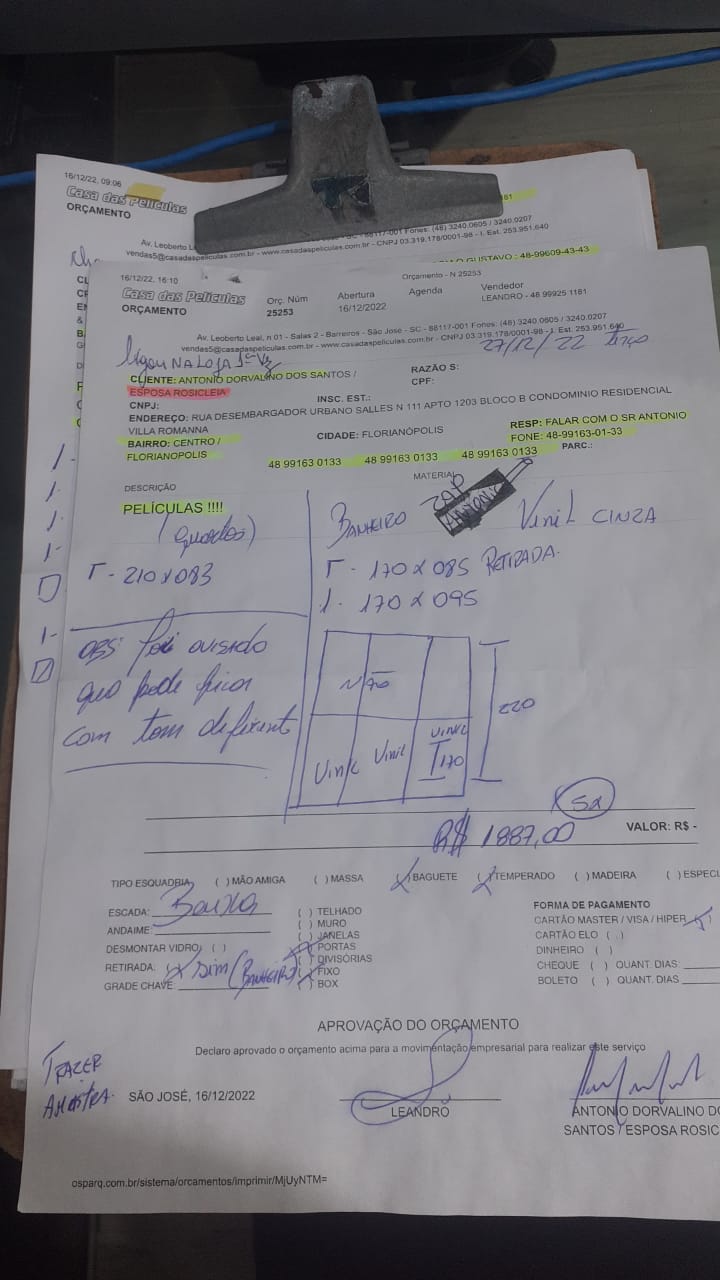 16/12/22, 09:06
Casa das Películas
ORÇAMENTO
Av. Leoberto
SC - 88117-001 Fones: (48) 3240.0605 / 3240.0207
vendas5@casadaspeliculas.com.br - www.casadaspeliculas.com.br - CNPJ 03.319.178/0001-98 - I. Est. 253.951.640
GUSTAVO : 48-99609-43-43
16/12/22, 16:10
Orçamento - N 25253
Casa das Películas
ORÇAMENTO
Orç. Núm
25253
Abertura
16/12/2022
Agenda
Vendedor
LEANDRO - 48 99925 1161
Av. Leoberto Leal, n 01 - Salas 2 - Barreiros - São José - SC - 88117-001 Fones: (48) 3240.0605 / 3240.0207
vendas5@casadaspeliculas.com.br - www.casadaspeliculas.com.br - CNPJ 03.319.178/0001-98 - I. Est. 253.951.640
27/12/22
NA LOJA
CLIENTE: ANTONIO DORVALINO DOS SANTOS /
ESPOSA ROSICLEIA
RAZÃO S:
CPF:
CNPJ:
INSC. EST.:
ENDEREÇO: RUA DESEMBARGADOR URBANO SALLES N 111 APTO 1203 BLOCO B CONDOMINIO RESIDENCIAL
VILLA ROMANNA
BAIRRO: CENTRO /
FLORIANOPOLIS
CIDADE: FLORIANÓPOLIS
RESP: FALAR COM O SR ANTONIO
FONE: 48-99163-01-33
48 99163 0133 48 99163 0133 48 99163 0133
PARC.:
DESCRIÇÃO
MATERIAL
PELÍCULAS !!!!
BANHEIRO
ANTONIO
VINIL CINZA
1 - 210 x 083
1 - 170 x 085 RETIRADA.
1 - 170 x 095
OBS: Foi avisado
que pode ficar
com tom diferent
NÃO
Vinil
Vinil
VINIL
170
220
5x
R$ 1887,00
VALOR: R$ -
TIPO ESQUADRIA ( ) MÃO AMIGA ( ) MASSA ( ) BAGUETE ( ) TEMPERADO ( ) MADEIRA ( ) ESPECI
ESCADA: Baixa
ANDAIME:
DESMONTAR VIDRO: ( )
RETIRADA: x Sim (BANHEIRO)
GRADE CHAVE:
( ) TELHADO
( ) MURO
( ) JANELAS
( ) PORTAS
( ) DIVISÓRIAS
( ) FIXO
( ) BOX
FORMA DE PAGAMENTO
CARTÃO MASTER / VISA / HIPER
CARTÃO ELO ( )
DINHEIRO ( )
CHEQUE ( ) QUANT. DIAS:
BOLETO ( ) QUANT. DIAS
APROVAÇÃO DO ORÇAMENTO
Declaro aprovado o orçamento acima para a movimentação empresarial para realizar este serviço
TRAZER
AMOSTRA.
SÃO JOSÉ, 16/12/2022
LEANDRO
ANTONIO DORVALINO DO
SANTOS / ESPOSA ROSIC
osparq.com.br/sistema/orcamentos/imprimir/MjUyNTM=